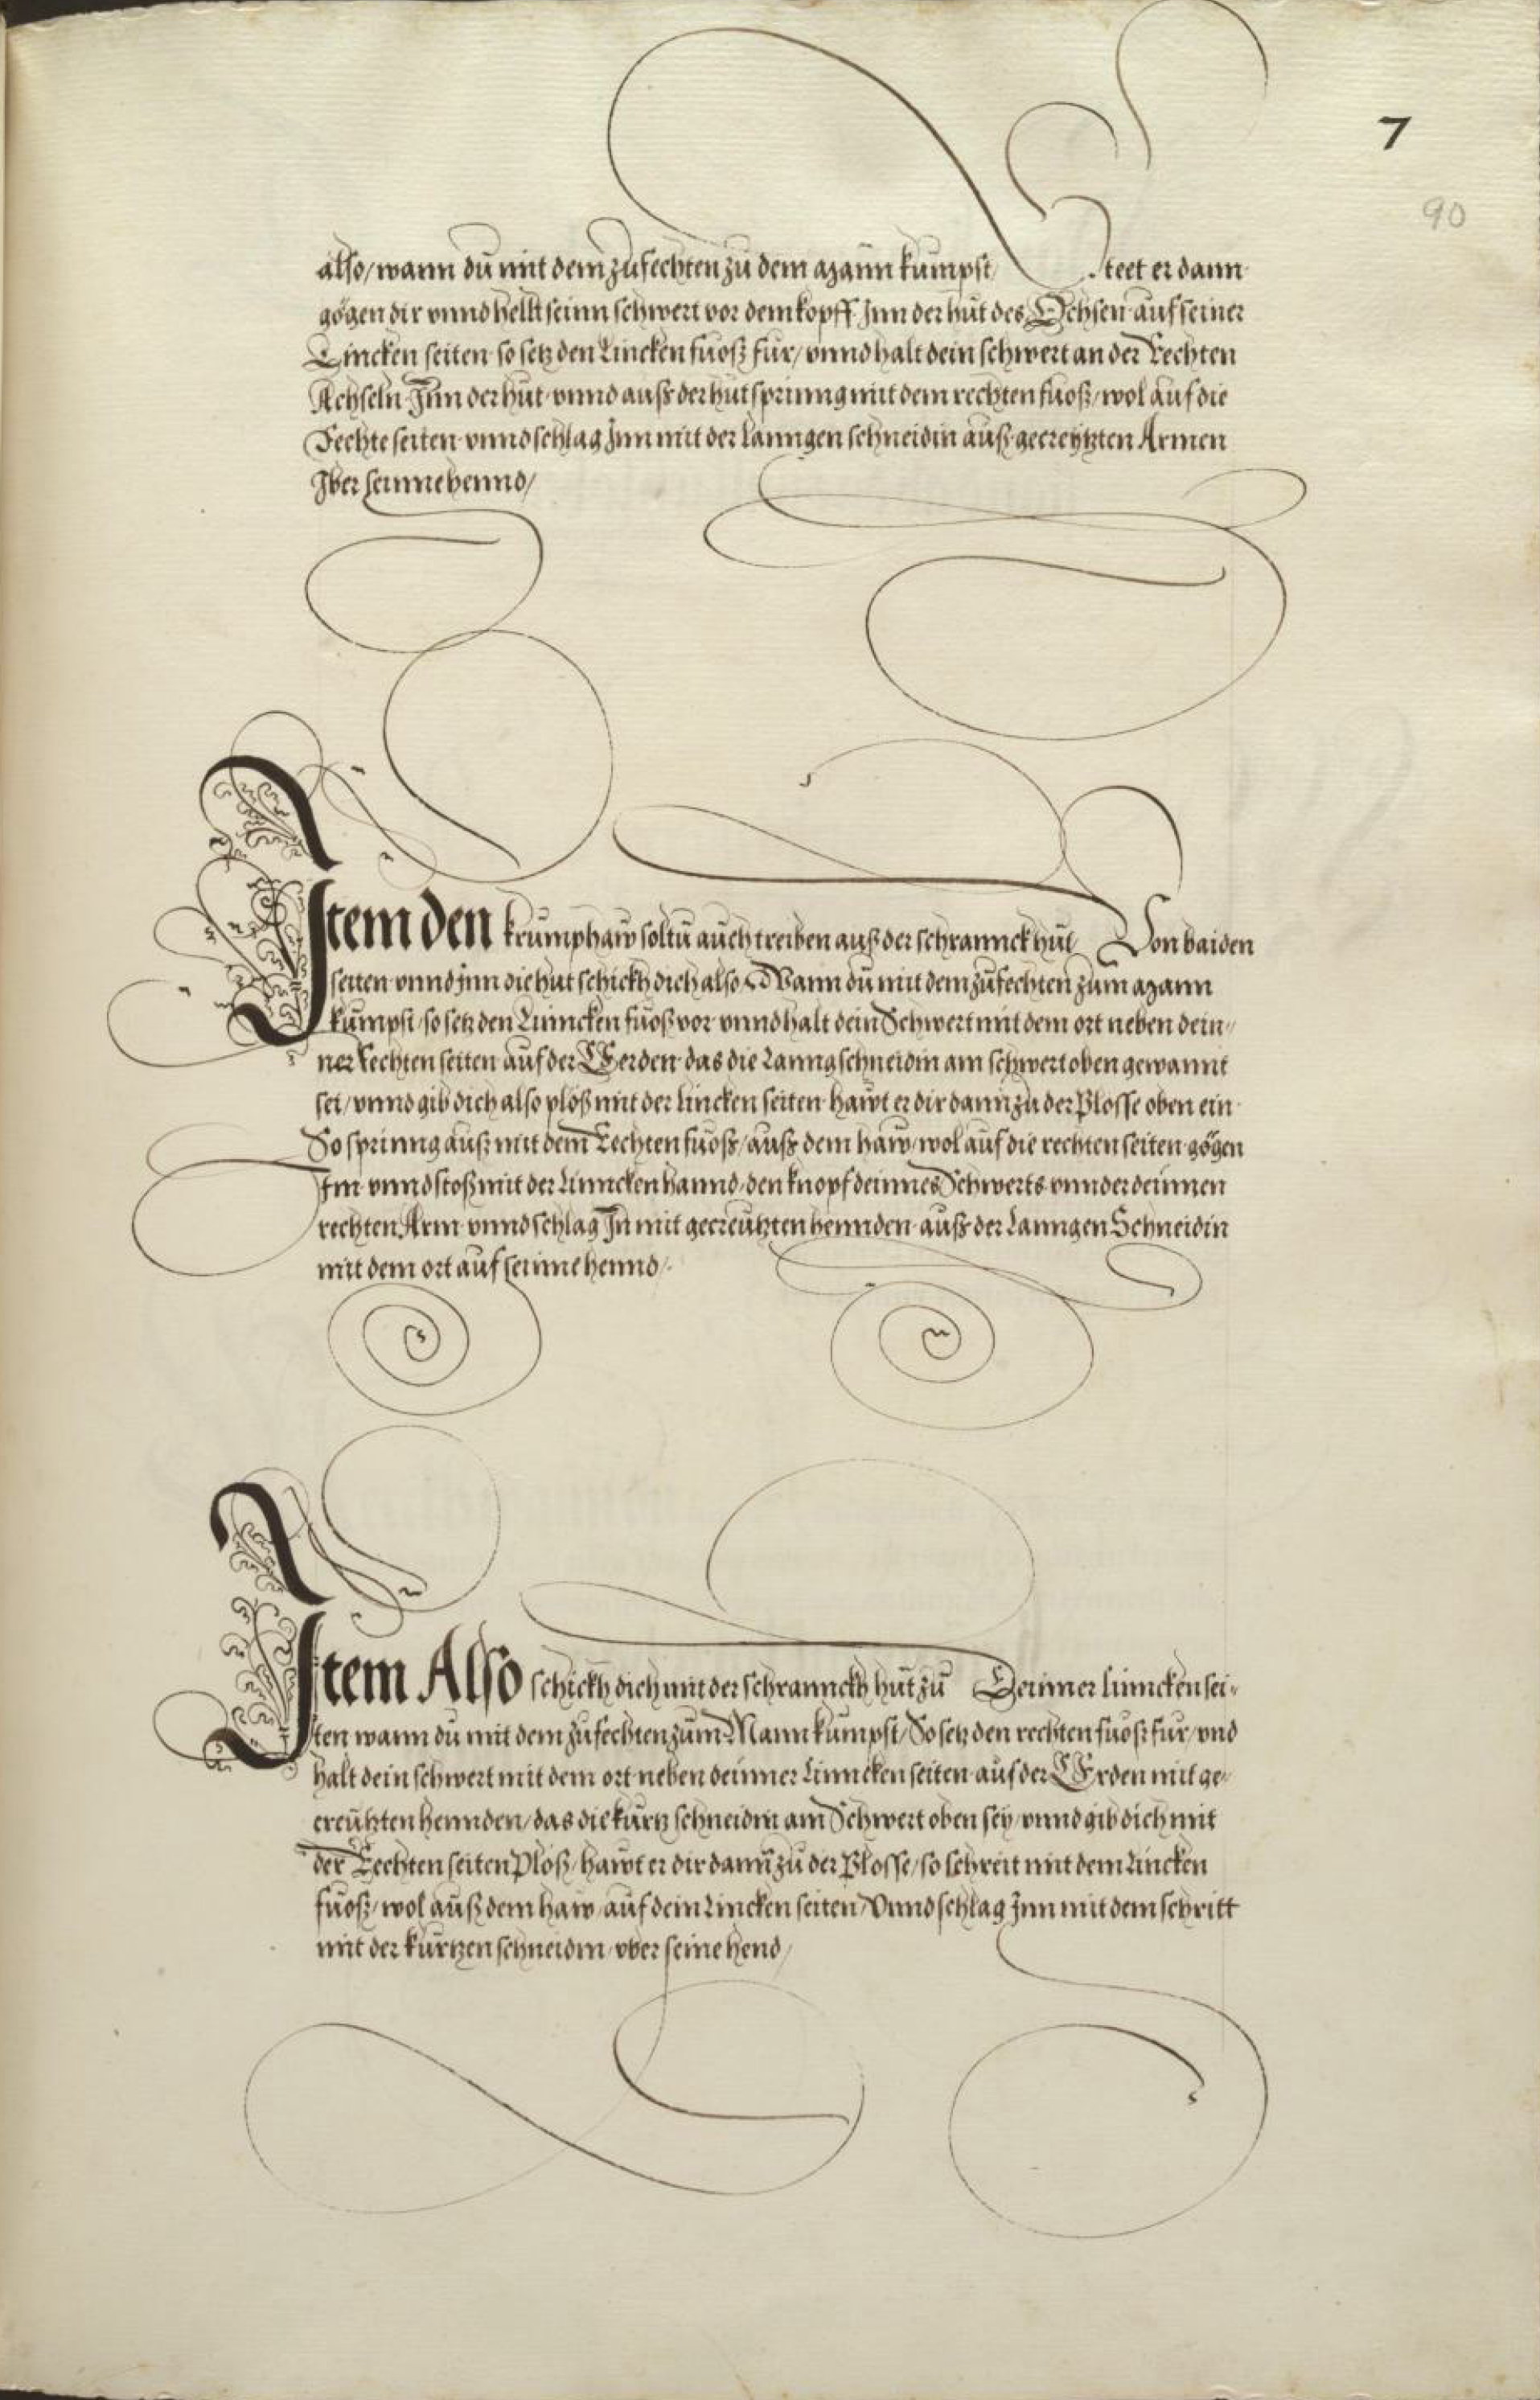 7
90
also / wann du mit dem zufechten zu dem mann kumpst / Steet er dann
gögen dir vnnd hellt seinn schwert vor dem kopff Jnn der hut des Ochsen auf seiner
Lincken seiten so setz den Lincken fuosz fur / vnnd halt dein schwert an der Rechten
Achseln Jnn der hut vnnd ausz der hut sprinng mit dem rechten fuosz / wol auf die
Rechte seiten vnnd schlag Jnn mit der lanngen schneidin ausz gecreytzten Armen
Jber seinne hennd /
Jtem den krumphaw soltu auch treiben ausz der schrannckhut / Von baiden
seiten vnnd jnn die hut schickh dich also / Wann du mit dem zufechten zum mann
kumpst / so setz den Linncken fuosz vor vnnd halt dein Schwert mit dem ort neben dein-
ner Rechten seiten auf der Erden das die Lanng schneidin am schwert oben gewannt
sei / vnnd gib dich also plosz mit der lincken seiten hawt er dir dann zu der Plosse oben ein
So sprinng ausz mit dem Rechten fuosz / ausz dem haw / wol auf die rechten seiten gögen
Jm vnnd stosz mit der Linncken hannd / den knopf deinnes Schwerts vnnder deinnen
rechten Arm vnnd schlag Jn mit gecreutzten hennden ausz der lanngen Schneidin
mit dem ort auf seinne hennd /
Jtem Also schickh dich mit der schrannckh hut zu Deinner linncken sei-
ten wann du mit dem zufechten zum Mann kumpst / So setz den rechten fuosz fur / vnd
halt dein schwert mit dem ort neben deinner Linncken seiten auf der Erden mit ge-
creutzten hennden / das die kurtz schneidin am Schwert oben sey / vnnd gib dich mit
der Rechten seiten Plosz / hawt er dir dann zu der Plosse / so schreit mit dem Lincken
fuosz / wol ausz dem haw / auf dein Lincken seiten / Vnnd schlag Jnn mit dem schritt
mit der kurtzen schneidin / vber seine hend /